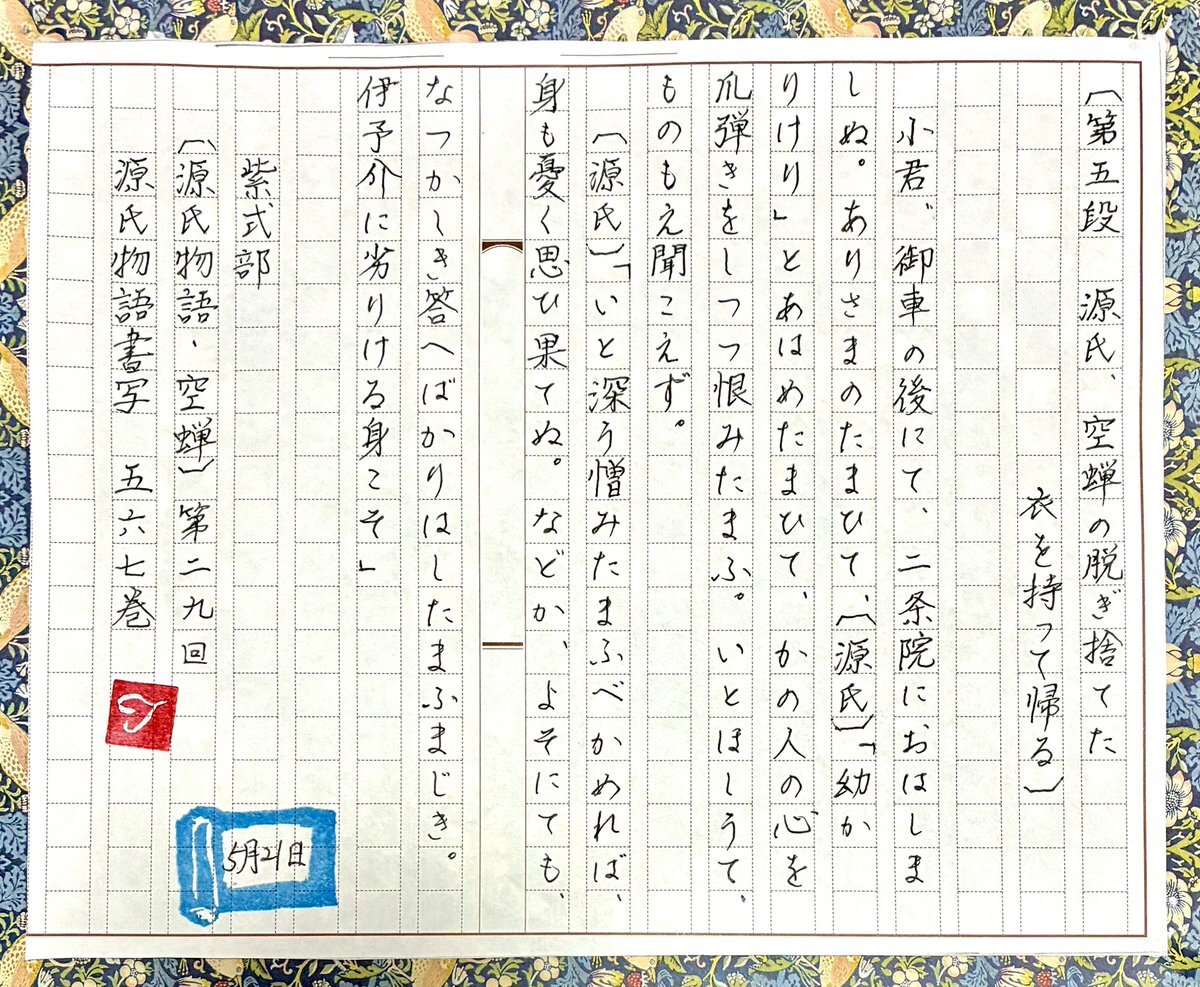 〔第五段　源氏、空蝉の脱ぎ捨てた
衣を持って帰る〕
小君、御車の後にて、二条院におはしま
しぬ。ありさまのたまひて、〔源氏〕「幼か
りけり」とあはめたまひて、かの人の心を
爪弾きをしつつ恨みたまふ。いとほしうて、
ものもえ聞こえず。
〔源氏〕「いと深う憎みたまふべかめれば、
身も憂く思ひ果てぬ。などか、よそにても、
なつかしき答へばかりはしたまふまじき。
伊予介に劣りける身こそ」
紫式部
〔源氏物語・空蝉〕第二九回
源氏物語書写　五六七巻
5月21日